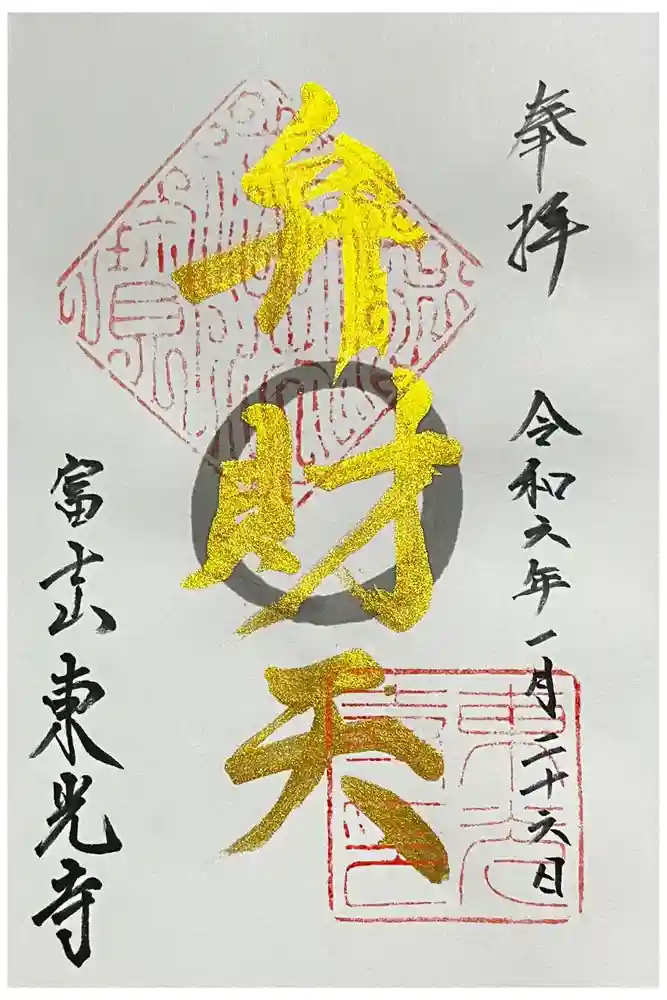 奉拝
令和六年一月二十六日
弁財天
富士山
東光寺